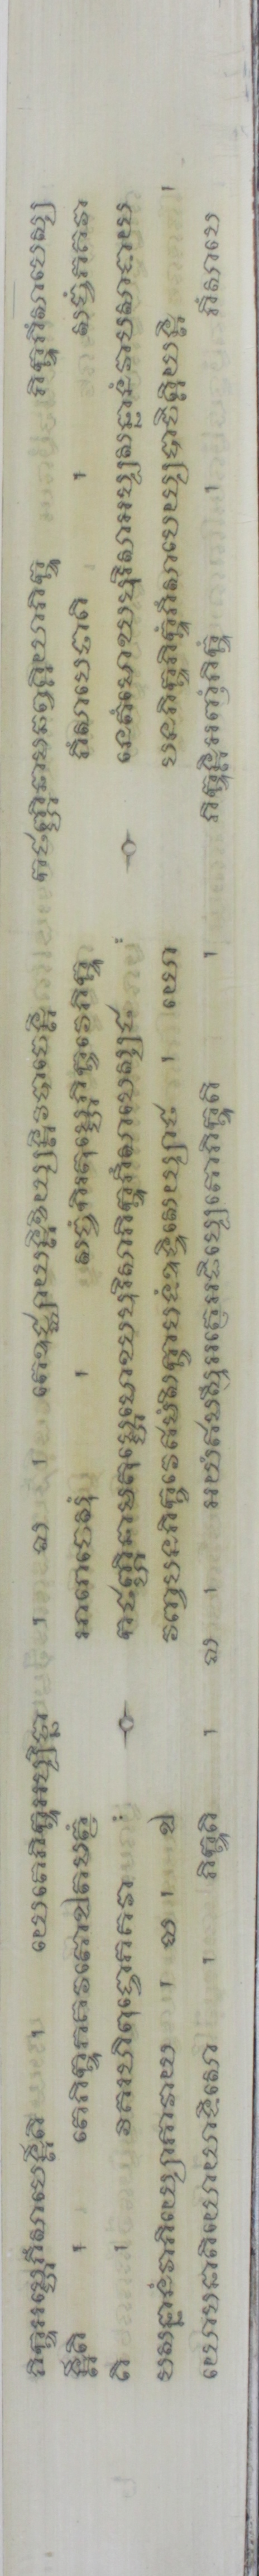 ភិក្ខូអម្ហេភឹសាបេន្តីតិ ។ យេតេភិក្ខូអប្បិច្ឆា ។ ល ។ តេឧជ្ឈាយន្តិខិយ្យន្តិវិបាចេន្តិ កថញ្ហិនាមឆព្វគ្គិយាភិក្ខូ ភិក្ខុភឹសាបេស្ស
ន្តីតិ ។ តេភិក្ខូភគវតោឯតមត្ថំ អារោចេសុំ ។ សច្ចំកិរតុម្ហេភិក្ខវេភិក្ខុ ភឹសាបេថាតិ ។ សច្ចំភគវា
តិ ។ វិគរហិពុទ្ធោភគវា ៖ កថញ្ហិនាមតុម្ហេមោឃបុរិសាភិក្ខុភឹសាបេស្សថ ៖ នេតំមោឃបុរិសាអប្បសន្នានំវាបសាទាយ
បសន្នានំវាភិយ្យោភាវាយ ។ ល ។ ឯ វញ្ចបនភិក្ខវេឥមំសិក្ខាបទំឧទ្ទិសេយ្យាថ ។ យោ បនភិក្ខុភិក្ខុំភឹសាបេយ្យបាចិត្តិយន្តិ ។
យោបនាតិយោយាទិសោ ។ ភិក្ខូតិ ។ ល ។ អយំឥមស្មឹអត្ថេអធិប្បេតោភិក្ខូតិ ។ ភិក្ខុន្តិអញ្ញំភិក្ខុំ ។ ភឹសាបេ